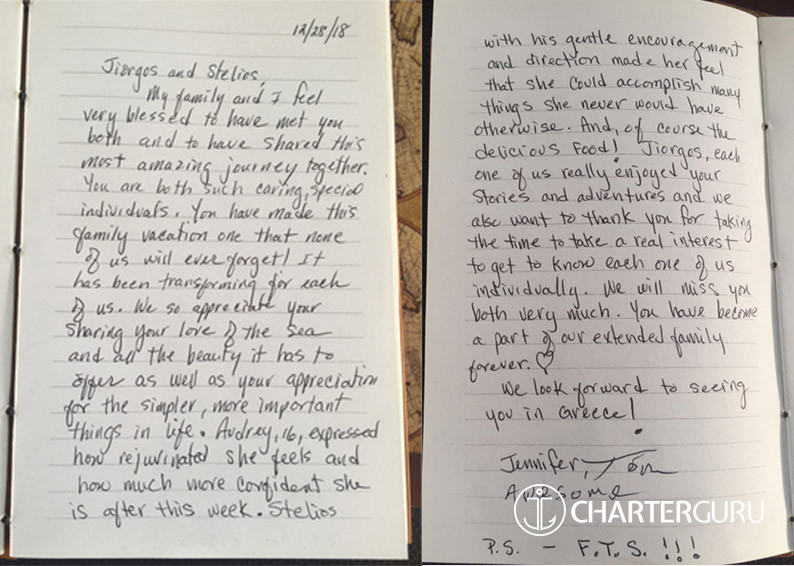 12/28/18
Jiorgos and Stelios,
My family and I feel
very blessed to have met you
both and to have shared this
most amazing journey together.
You are both such caring, special
individuals. You have made this
family vacation one that none
of us will ever forget! It
has been transforming for each
of us. We so appreciate your
sharing your love of the sea
and all the beauty it has to
offer as well as your appreciation
for the simpler, more important
things in life. Audrey, 16, expressed
how rejuvinated she feels and
how much more confident she
is after this week. Stelios
with his gentle encouragement
and direction made her feel
that she could accomplish many
things she never would have
otherwise. And, of course the
delicious food! Jiorgos, each
one of us really enjoyed your
stories and adventures and we
also want to thank you for taking
the time to take a real interest
to get to know each one of us
individually. We will miss you
both very much. You have become
a part of our extended family
forever. ♡
We look forward to seeing
you in Greece!
Jennifer, Tom
Awesome
CHARTERGURU
P.S. – F.T.S. !!!